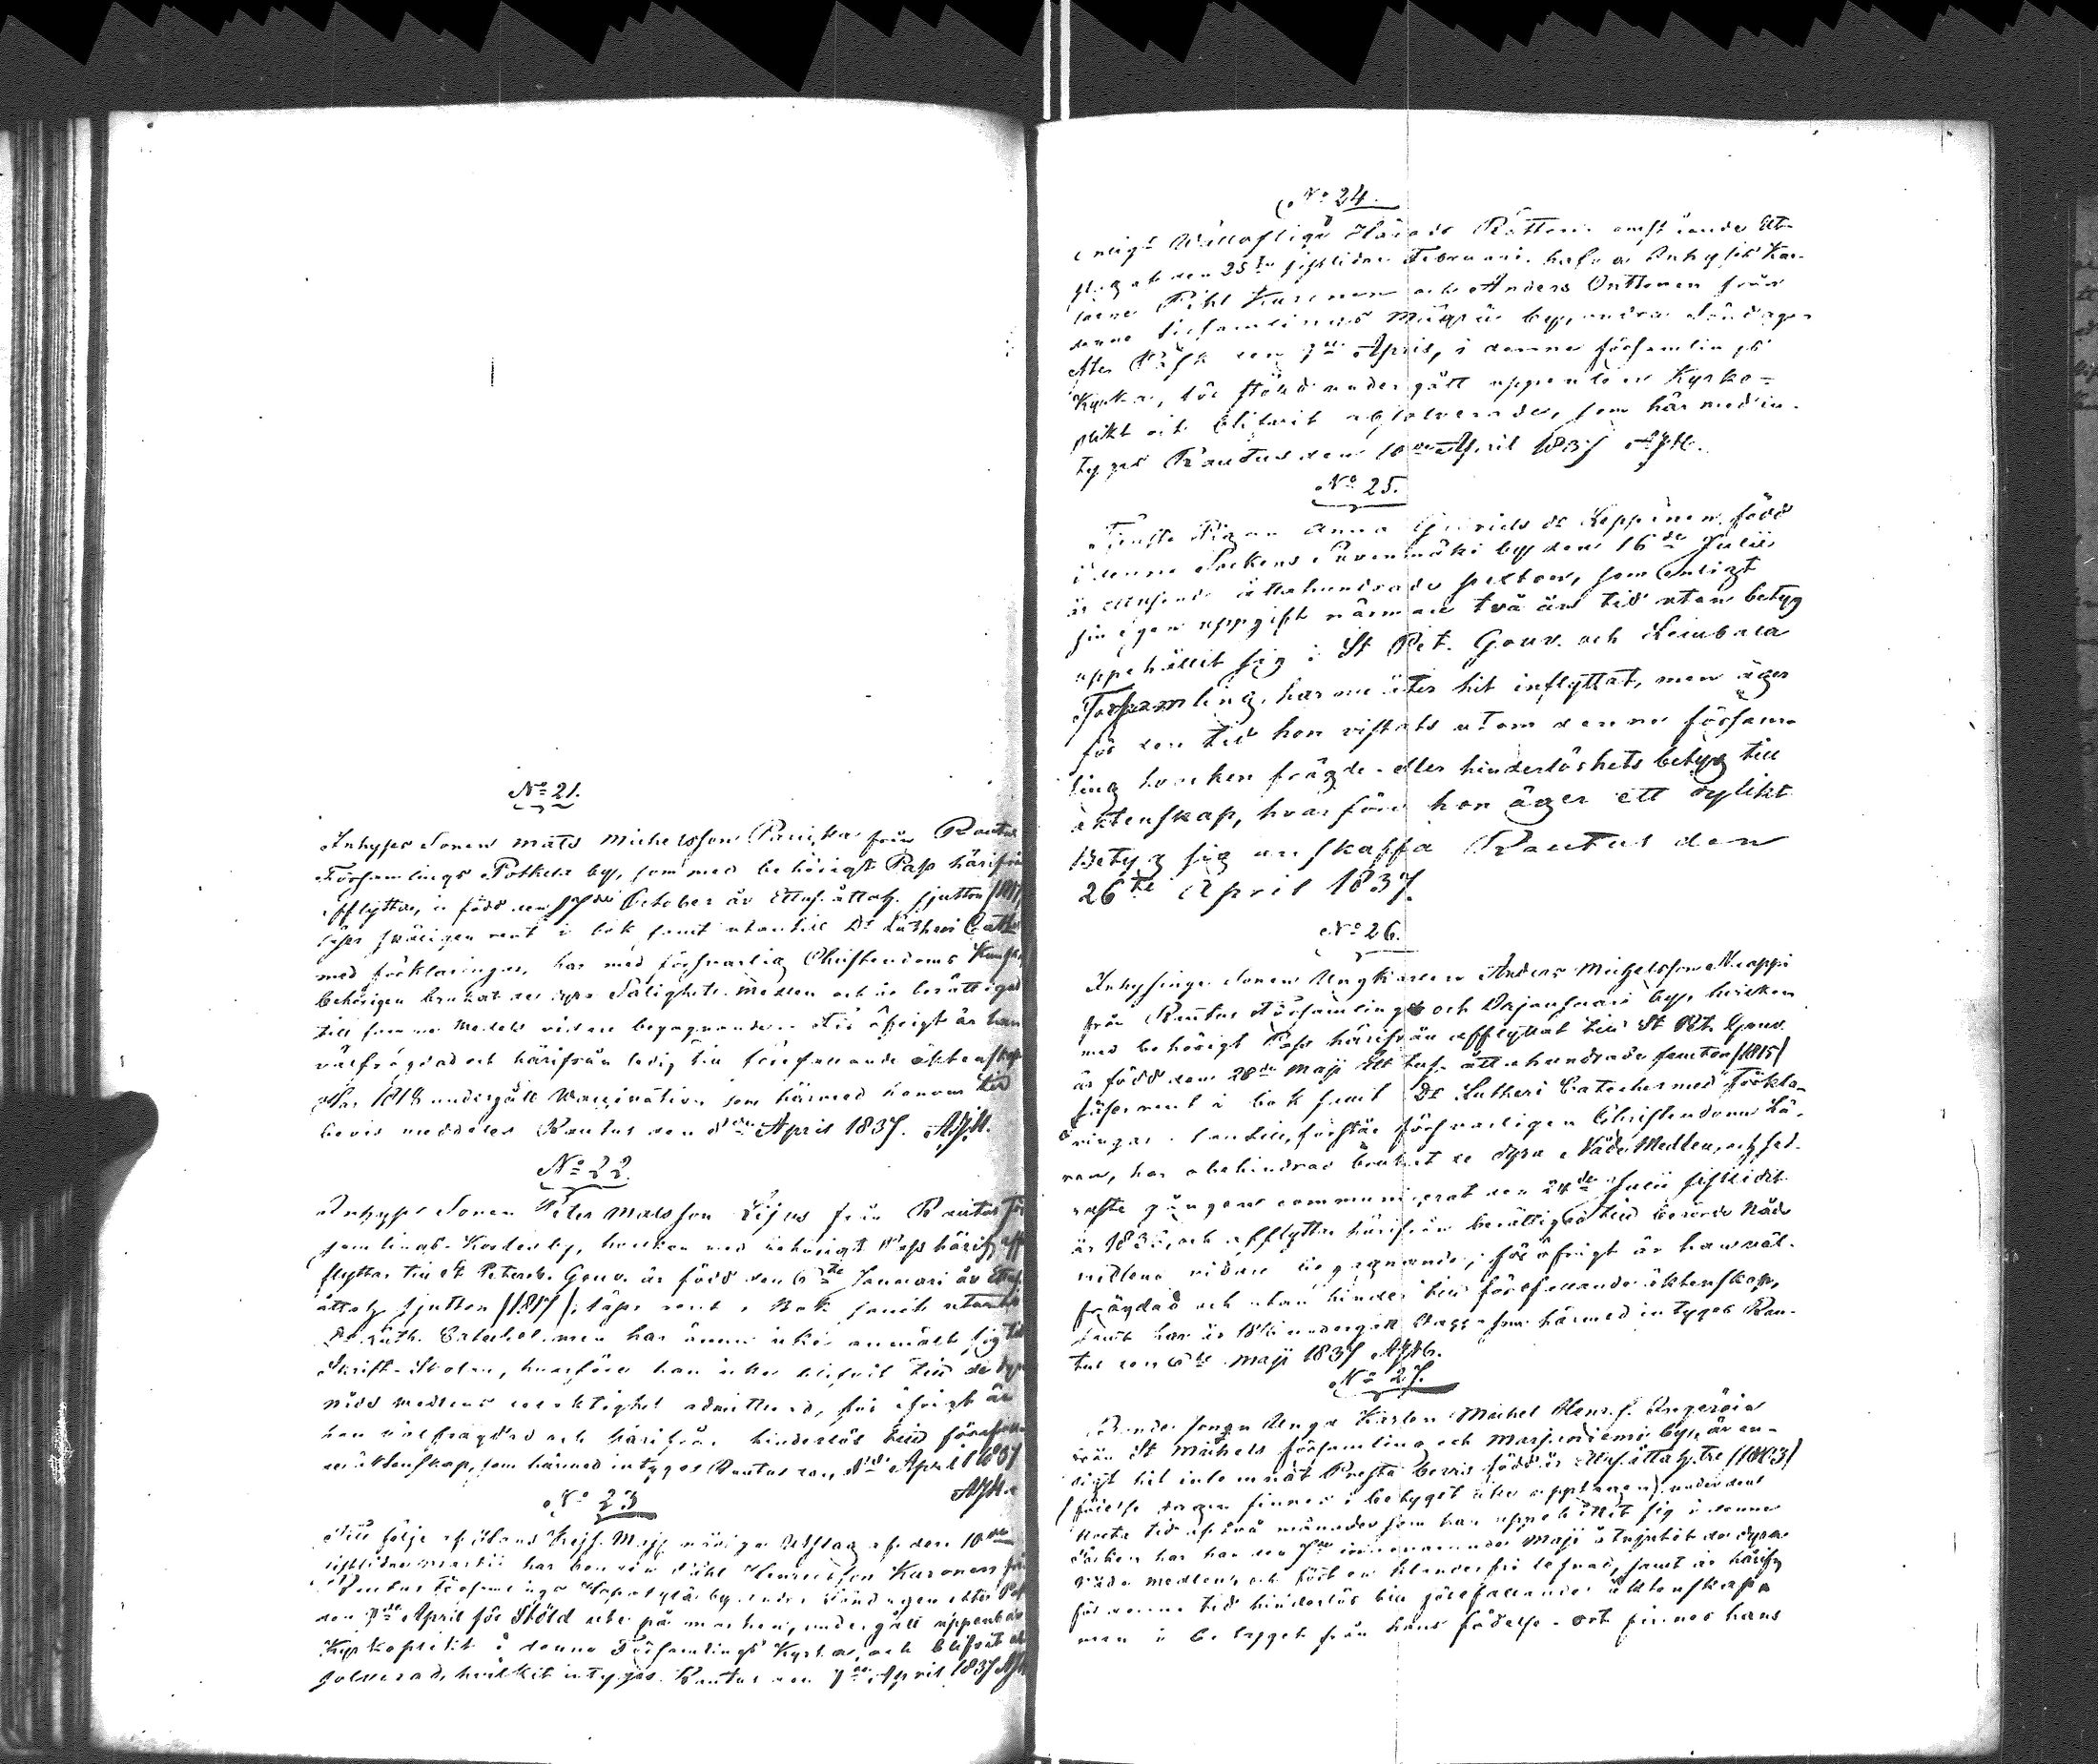 No 21.
Inhyses Sonen Mats Michelsson Paukka från Rautus
Församlings Potkela by, som med behörigt Pass härifrån
afflyttar, är född den October år Ettus. åttah. sjutton /1817/
läser rent i bok samt utantill Dr Lutheri Cath
med förklaringar, har med försvarlig Christendoms Kunsk
behörigen brukat de dyra Salighets Medlen och är berättigad
till samma Medels vidare begagnande. För öfrigt är han
välfrägdad och härifrån ledig till förefallande äktenskap
Har 1818 undergått Vaccination som härmed honom till
bevis meddeles Rautus den 8de April 1837. AJH.
No 22.
Inhyses Sonen Peter Matsson Lijus från Rautus För
samlings Kosela by, hvilken med behörigt Pass härifr. aff
flyttar till St Petersb. Gouv. är född den 6te Januari år Ettus.
åttah. sjutton /1817/, läser rent i Bok samt utantill
Dr Luth. Catechel. men har ännu icke anmält sig till
Skrift-Skolan, hvarföre han icke blifvit till de dyra
nåds medlens delaktighet admitterad, för öfrigt är
han välfrägdad och härifrån hinderlös till förefallan
de äktenskap, som härmed intyges Rautus den 8de April 1837
AJH.
No 23
Till följe af Hans Kejs. Majts nådiga Utslag af den 10de
sistlidne Martii har bonden Pihl Henricsson Kuronen från
Rautus Församlings by andra Söndagen efter Påsk
den 9de April för Stöld på marken, undergått uppenbar
Kyrkoplikt i denna Församlings Kyrka, och blifvit ab
solverad, hvilket intygas. Rautus den 9de April 1837 AJH
No 24.
Enligt Wällofliga Härads Rättens Ut-
slag af den 25te sistlidne Februari hafva Inhyses Kar-
larne Pihl Kuronen och Anders Onttonen från
denna Församlings by, andra Söndagen
efter Påsk den 9de April, i denna församlings
Kyrka, för stöld undergått uppenbar Kyrko-
plikt och blifvit absolverade, som härmed in-
tyges Rautus den 10de April 1837 AJH.
No 25.
Tjenste Pigan Anna Gabrielsdr Leppänen, född
i denna Sockens Suvenmäki by den 16de Julii
år ettusende åttahundrade sexton, som enligt
sin egen uppgift närmare två års tid utan betyg
uppehållit sig i St Pet. Gouv. och Lembala
Församling, har nu åter hit inflyttat, men äger
för den tid hon vistats utom denna försam-
ling hvarken frägde- eller hinderlöshets betyg till
äktenskap, hvarföre hon äger ett dylikt
Betyg sig anskaffa Rautus den
26te April 1837.
No 26.
Inhysinge Sonen Ungkarlen Anders Michelsson Nuappi
från Rautus Församlings och Orjansaari by, hvilken
med behörigt Pass härifrån afflyttat till St Pet. Gouv.
är född den 28de Maji Ett tus. åttahundrade femton /1815/
läser rent i bok samt Dr Lutheri Cateches med Förkla-
ringar utantill, förstår försvarligen Christendoms Lä-
ran, har obehindrad brukat de dyra Nåde Medlen, och sed-
naste gången communicerat den 24de Julii sistlidit
år 1836, och afflyttar härifrån berättigad till berörde Nåde
medlens vidare begagnande; för öfrigt är han väl-
frägdad och utan hinder till förefallande äktenskap,
samt har år undergått Vacc. som härmed intyges Rau-
tus den 6te Maji 1837 AJH.
No 27.
Bonde Sonen Unga Karlen Michel Henr.s. Ingeröin
från St Michels församling och Marjoniemi by, är en-
ligt hit inlemnat Prestabevis född år Ettus. åttah. tre /1803/
(födelse dagen finnes i betyget icke upptagen) under den
korta tid af två månader som han uppehållit sig i denna
Socken har han den innevarande Maji åtnjutit de dyra
Nåde medlen, och fört en klanderfri lefnad, samt är härifr.
för denna tid hinderlös till förefallande äktenskap
men i betyget från hans födelse-ort finnes hans